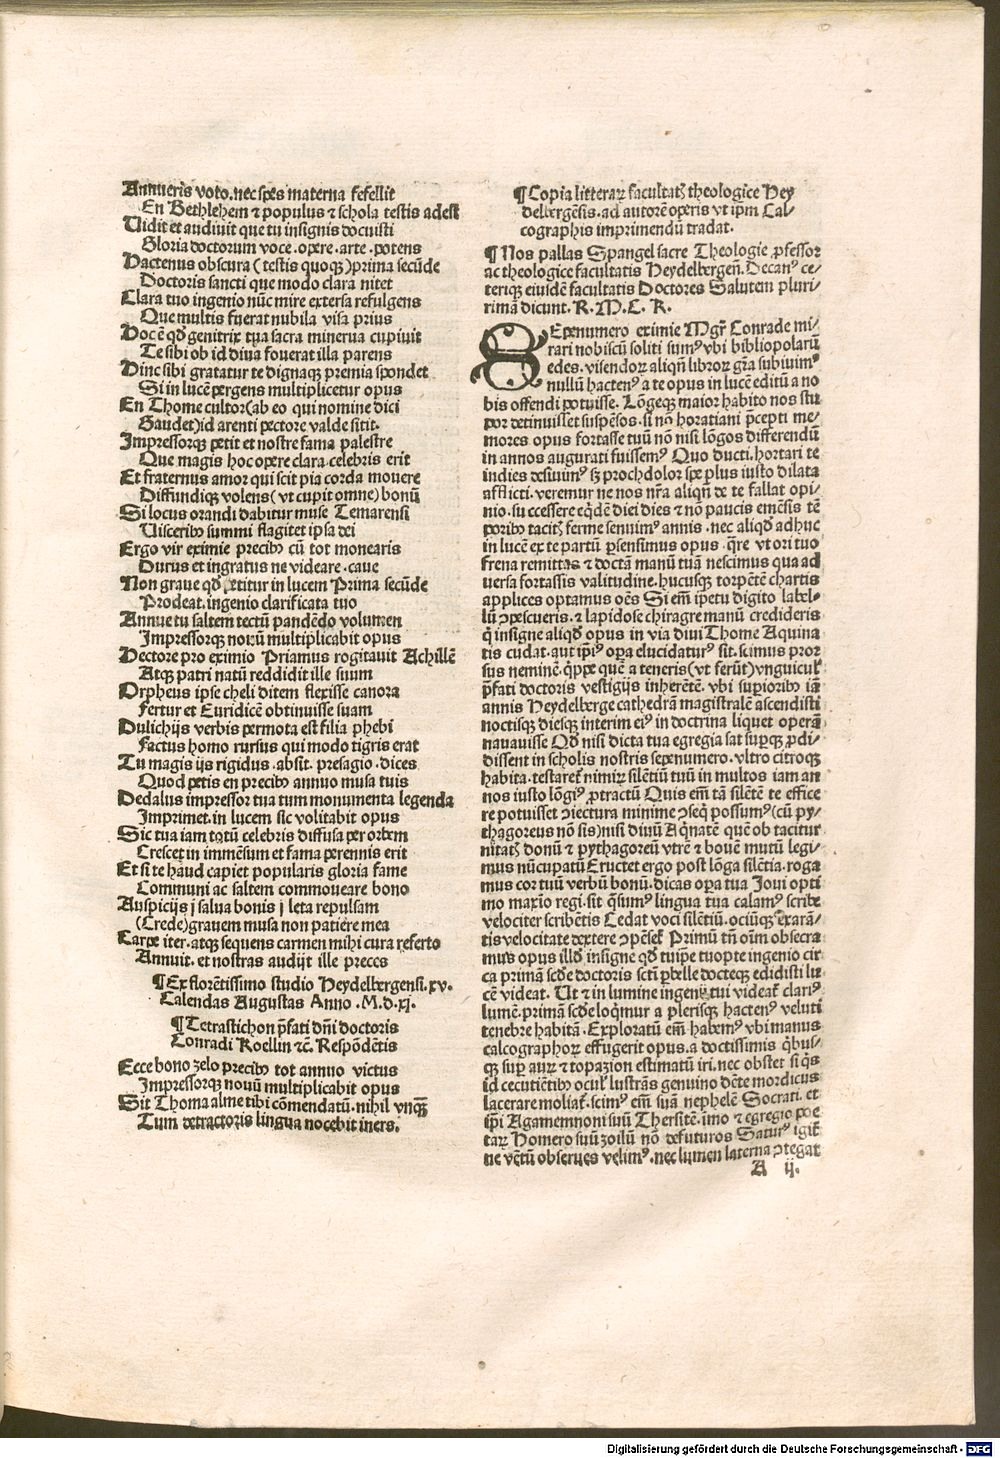 Annueris voto.nec spes materna fefellit
En Bethlehem ⁊ populus ⁊ schola testis adest
Vidit et audiuit que tu insignis docuisti
Gloria doctorum voce.opere.arte.potens
Hactenus obscura (testis quoqꝫ)prima secūde
Doctoris sancti que modo clara nitet
Clara tuo ingenio nūc mire extersa refulgens
Que multis fuerat nubila visa prius
Hoc ē qđ genitrix tua sacra minerua cupiuit
Te sibi ob id diua fouerat illa parens
Hinc sibi gratatur te dignaqꝫ premia spondet
Si in lucē pergens multiplicetur opus
En Thome cultor(ab eo qui nomine dici
Gaudet)id arenti pectore valde sitit.
Impressorqꝫ petit et nostre fama palestre
Que magis hoc opere clara.celebris erit
Et fraternus amor qui scit pia corda mouere
Diffundiqꝫ volens(vt cupit omne) bonū
Si locus orandi dabitur muse Temarensi
Uisceribꝰ summi flagitet ipsa dei
Ergo vir eximie precibꝰ cū tot monearis
Durus et ingratus ne videare.caue
Non graue qđ petitur in lucem Prima secūde
Prodeat.ingenio clarificata tuo
Annue tu saltem tectū pandēdo volumen
Impressorqꝫ nouū multiplicabit opus
Hectore pro eximio Priamus rogitauit Achillē
Atqꝫ patri natū reddidit ille suum
Orpheus ipse cheli ditem flexisse canora
Fertur et Euridicē obtinuisse suam
Dulichijs verbis permota est filia phebi
Factus homo rursus qui modo tigris erat
Tu magis ijs rigidus.absit.presagio.dices
Quod petis en precibꝰ annuo musa tuis
Dedalus impressor tua tum monumenta legenda
Imprimet.in lucem sic volitabit opus
Sic tua iam totū celebris diffusa per orbem
Crescet in immēsum et fama perennis erit
Et si te haud capiet popularis gloria fame
Communi ac saltem commoueare bono
Auspicijs j salua bonis j leta repulsam
(Crede)grauem musa non patiere mea
Carpe iter.atqꝫ sequens carmen mihi cura referto
Annuit.et nostras audijt ille preces
¶ Ex florētissimo studio Heydelbergensi.xv.
Calendas Augustas Anno.M.d.xj.
¶ Tetrastichon p̄fati dn̄i doctoris
Conradi Koellin ⁊c̄. Respōdētis
Ecce bono zelo precibꝰ tot annuo victus
Impressorqꝫ nouū multiplicabit opus
Sit Thoma alme tibi cōmendatū.nihil vnqꝫ̄
Tum detractoris lingua nocebit iners.
¶ Copia litteraꝝ facultatꝭ theologice Hey
delbergēsis.ad autorē operis vt ip̄m Cal⸗
cographis imprimendū tradat.
¶ Nos pallas Spangel sacre Theologie ꝓfessor
ac theologice facultatis Heydelbergen̄. Decanꝰ ce⸗
teriqꝫ eiusdē facultatis Doctores Salutem pluri⸗
rimā dicunt.R.M.C.K.
SEpenumero eximie Mgr̄ Conrade mi⸗
rari nobiscū soliti sumꝰ vbi bibliopolarū
edes.visendoꝝ aliqn̄ libroꝝ gr̄a subiuimꝰ
nullū hactenꝰ a te opus in lucē editū a no
bis offendi potuisse. Lōgeqꝫ maior habito nos stu
por detinuisset suspēsos.si nō horatiani p̄cepti me⸗
mores opus fortasse tuū nō nisi lōgos differendū
in annos augurati fuissemꝰ Quo ducti.hortari te
indies desiuimꝰ sꝫ prochdolor spe plus iusto dilata
afflicti.veremur ne nos nr̄a aliqn̄ de te fallat opi⸗
nio.successere eq̄dē diei dies ⁊ nō paucis emēsis tē
poribꝰ tacitꝭ ferme seniuimꝰ annis.nec aliqđ adhuc
in lucē ex te partū ꝑsensimus opus.q̄re vt ori tuo
frena remittas ⁊ doctā manū tuā nescimus qua ad
uersa fortassis valitudine.hucusqꝫ torpētē chartis
applices optamus oēs Si em̄ īpetu digito label⸗
lū ꝯpescueris.⁊ lapidose chiragre manū credideris
q̄ insigne aliqđ opus in via diui Thome Aquina
tis cudat.aut ip̄iꝰ oꝑa elucidaturꝰ sit.scimus pror
sus neminē.q̄ppe quē a teneris(vt ferūt)vnguiculꝭ
p̄fati doctoris vestigijs inherētē.vbi suꝑioribꝰ iā
annis Heydelberge cathedrā magistralē ascendisti
noctisqꝫ diesqꝫ interim eiꝰ in doctrina liquet operā
nauauisse Qđ nisi dicta tua egregia sat suꝑqꝫ ꝓdi⸗
dissent in scholis nostris sepenumero.vltro citroqꝫ
habita.testaret᷑ nimiꝝ silētiū tuū in multos iam an
nos iusto lōgiꝰ ꝓtractū Quis em̄ tā silētē te effice
re potuisset ꝯiectura minime ꝯseq̄ possumꝰ(cū py⸗
thagoreus nō sis)nisi diuū Aq̄natē quē ob tacitur
nitatꝭ donū ⁊ pythagoreū vtrē ⁊ bouē mutū legi⸗
mus nūcupatū Eructet ergo post lōga silētia.roga
mus cor tuū verbū bonū.dicas oꝑa tua Joui opti
mo maxio regi.sit q̄sumꝰ lingua tua calamꝰ scribe
velociter scribētis Cedat voci silētiū.ociūqꝫ exarā⸗
tis velocitate dextere ꝯpēset᷑ Primū tn̄ oīm obsecra
mus opus illđ insigne qđ tuip̄e tuopte ingenio cir
ca primā scđe doctoris sctī ꝑbelle docteqꝫ edidisti lu⸗
cē videat. Ut ⁊ in lumine ingenij tui videat᷑ clariꝰ
lumē.primā scđe loq̄mur a plerisqꝫ hactenꝰ veluti
tenebre habitā.Exploratū em̄ habemꝰ vbi manus
calcographoꝝ effugerit opus.a doctissimis q̄bus⸗
qꝫ suꝑ auꝝ ⁊ topazion estimatū iri.nec obstet si q̄s
id cecutiētibꝰ oculꝭ lustrās genuino dēte mordicus
lacerare moliat᷑.scimꝰ em̄ suā nephelē Socrati.et
ip̄i Agamemnoni suū Thersitē.imo ⁊ egregio poe
taꝝ Homero suū zoilū nō defuturos Saturꝰ igit᷑
ne vētū obserues velimꝰ.nec lumen laterna ꝯtegat
A ij.
Digitalisierung gefördert durch die Deutsche Forschungsgemeinschaft - DFG